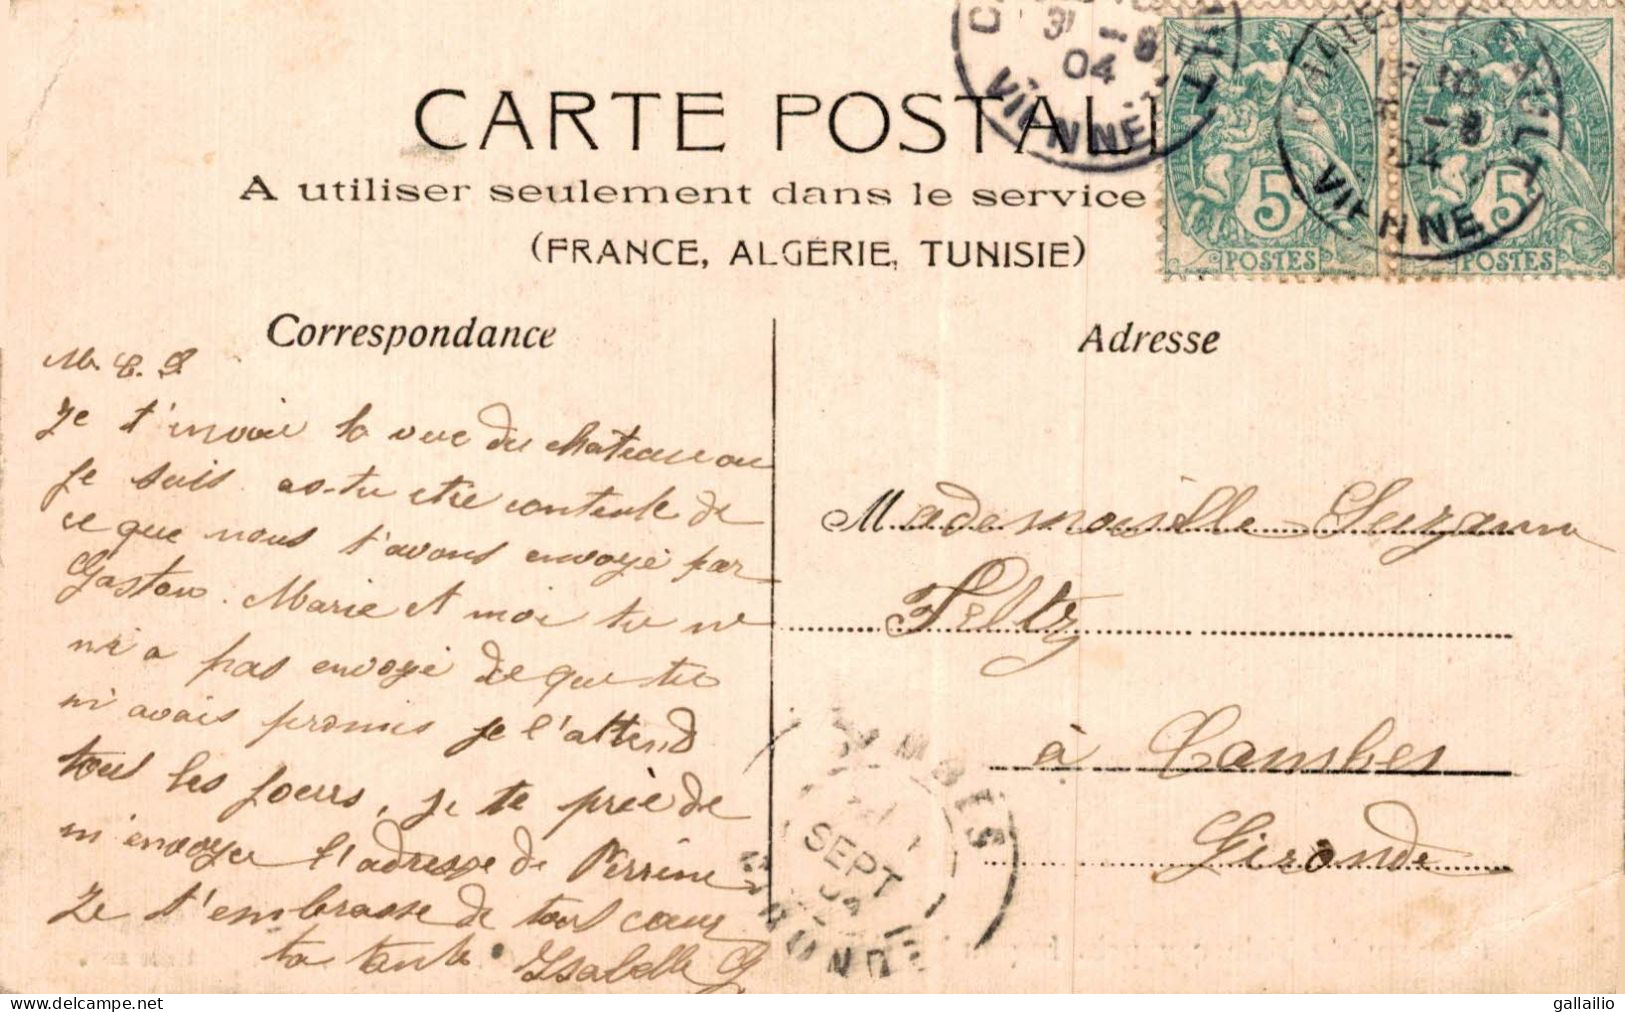 CARTE POSTAL
A utiliser seulement dans le service
(FRANCE, ALGÉRIE, TUNISIE)
5
POSTES
5
POSTES
31 - 8
04
VIENNE
VIENNE
Correspondance
Adresse
M. C. S
Je t'invoie la vue du chateau ou
je suis. as-tu etée contente de
ce que nous t'avons envoyé par
Gaston. Marie et moi tu ne
m'a pas envoyé de que tu
m'avais promis je l'attend
tous les jours, je te prie de
m'envoyer l'adresse de Perrine
Je t'embrasse de tout coeur
ta tante Isabelle
Mademoiselle Suzanne
Feltz
à Cambes
Gironde
CAMBES
SEPT
04
GIRONDE
gallailio